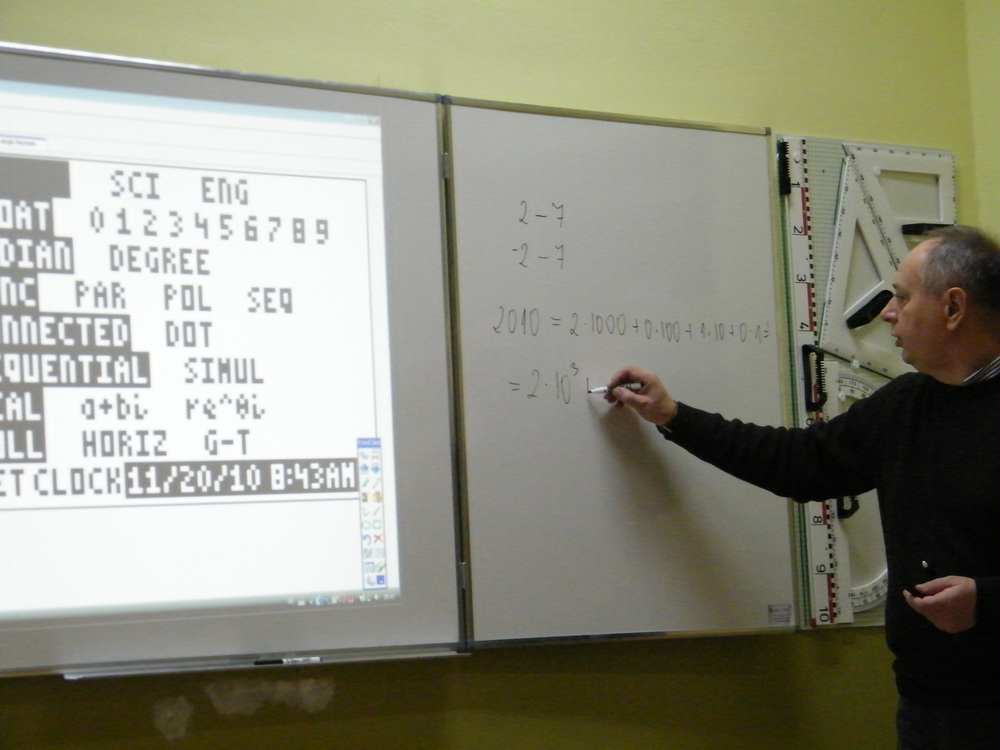 SCI ENG
OAT 0 1 2 3 4 5 6 7 8 9
DIAN DEGREE
NC PAR POL SEQ
NNECTED DOT
EQUENTIAL SIMUL
EAL a+bi re^θi
ULL HORIZ G-T
ET CLOCK 11/20/10 8:43AM
2-7
-2-7
2010 = 2·1000+0·100+1·10+0·1=
= 2·10³
1
2
3
4
8
9
10